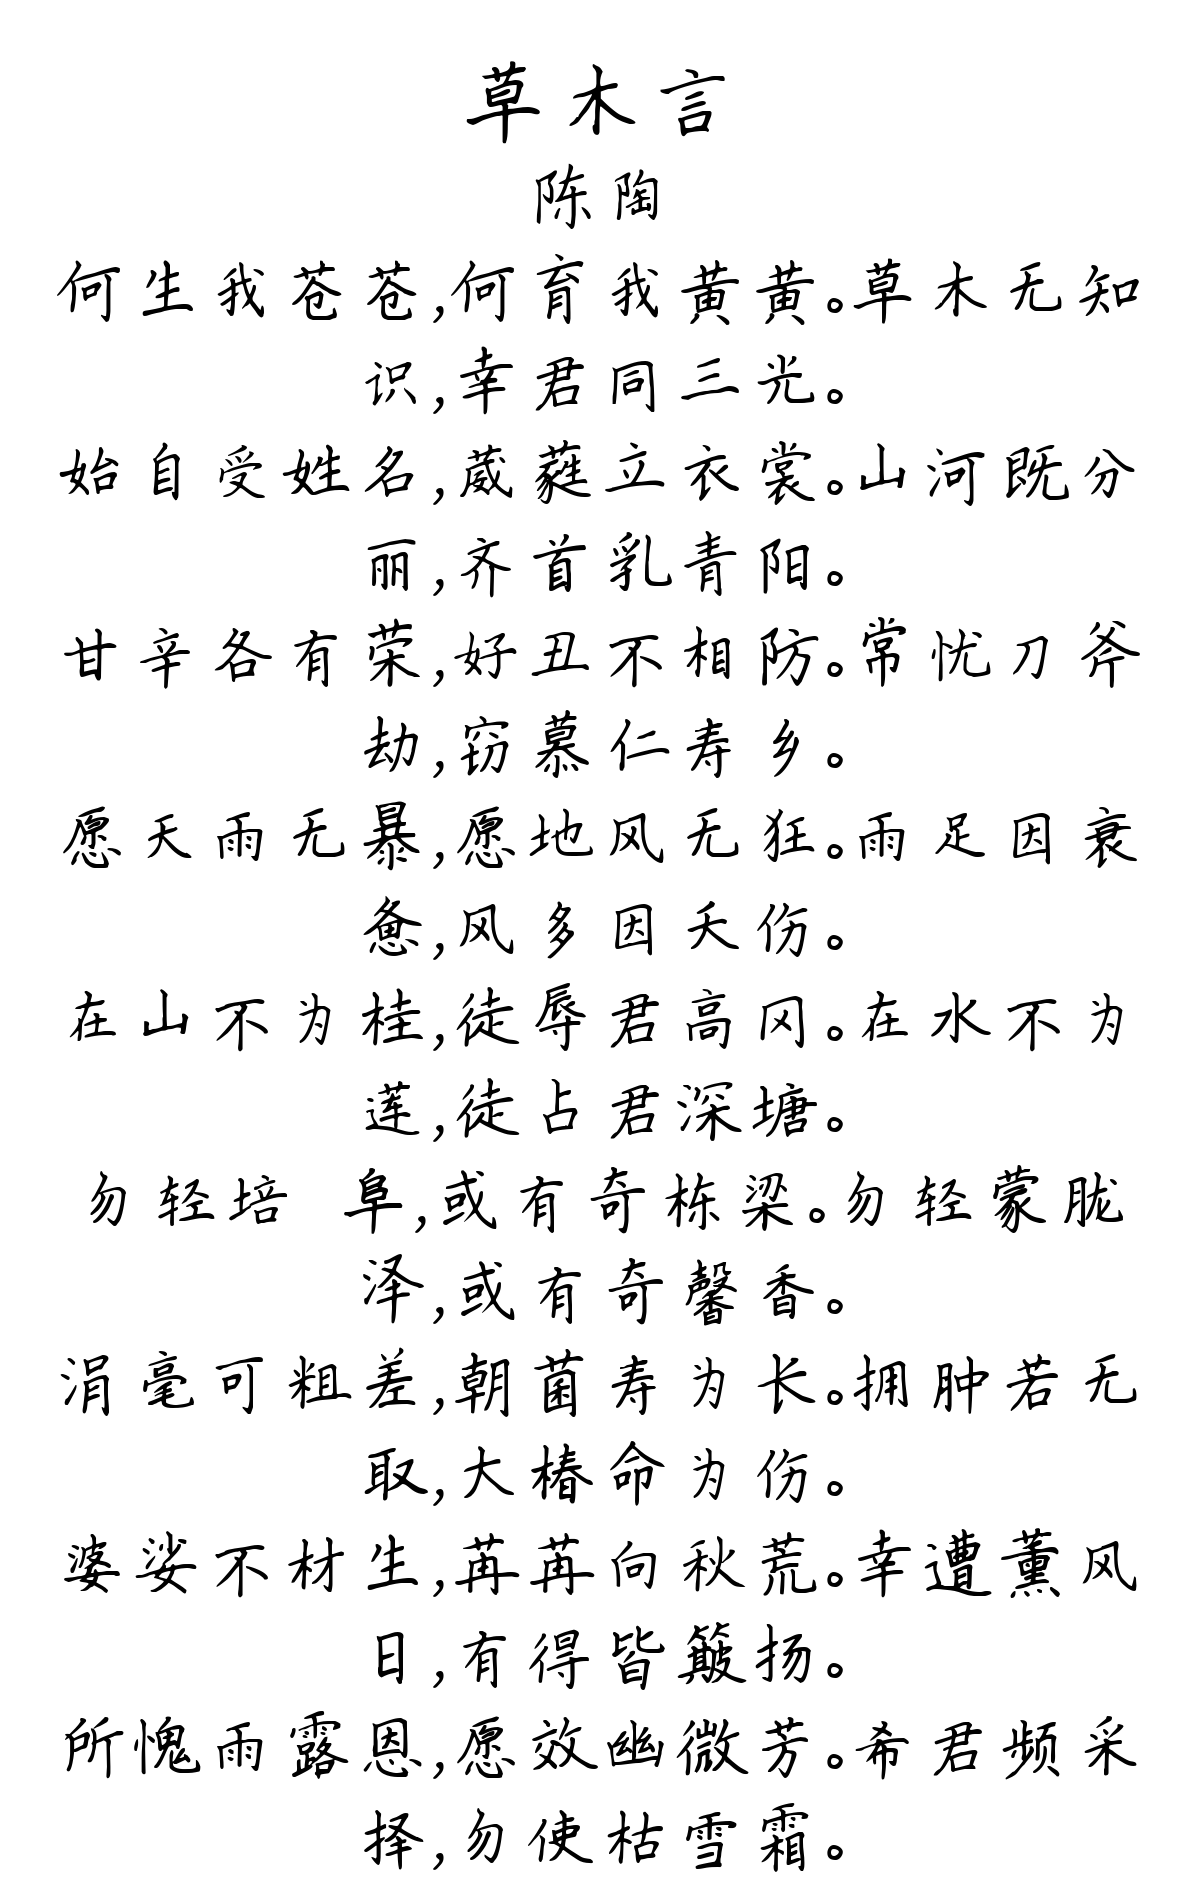 草木言
陈陶
何生我苍苍,何育我黄黄。草木无知
识,幸君同三光。
始自受姓名,葳蕤立衣裳。山河既分
丽,齐首乳青阳。
甘辛各有荣,好丑不相防。常忧刀斧
劫,窃慕仁寿乡。
愿天雨无暴,愿地风无狂。雨足因衰
惫,风多因夭伤。
在山不为桂,徒辱君高冈。在水不为
莲,徒占君深塘。
勿轻培 阜,或有奇栋梁。勿轻蒙胧
泽,或有奇馨香。
涓毫可粗差,朝菌寿为长。拥肿若无
取,大椿命为伤。
婆娑不材生,苒苒向秋荒。幸遭薰风
日,有得皆簸扬。
所愧雨露恩,愿效幽微芳。希君频采
择,勿使枯雪霜。